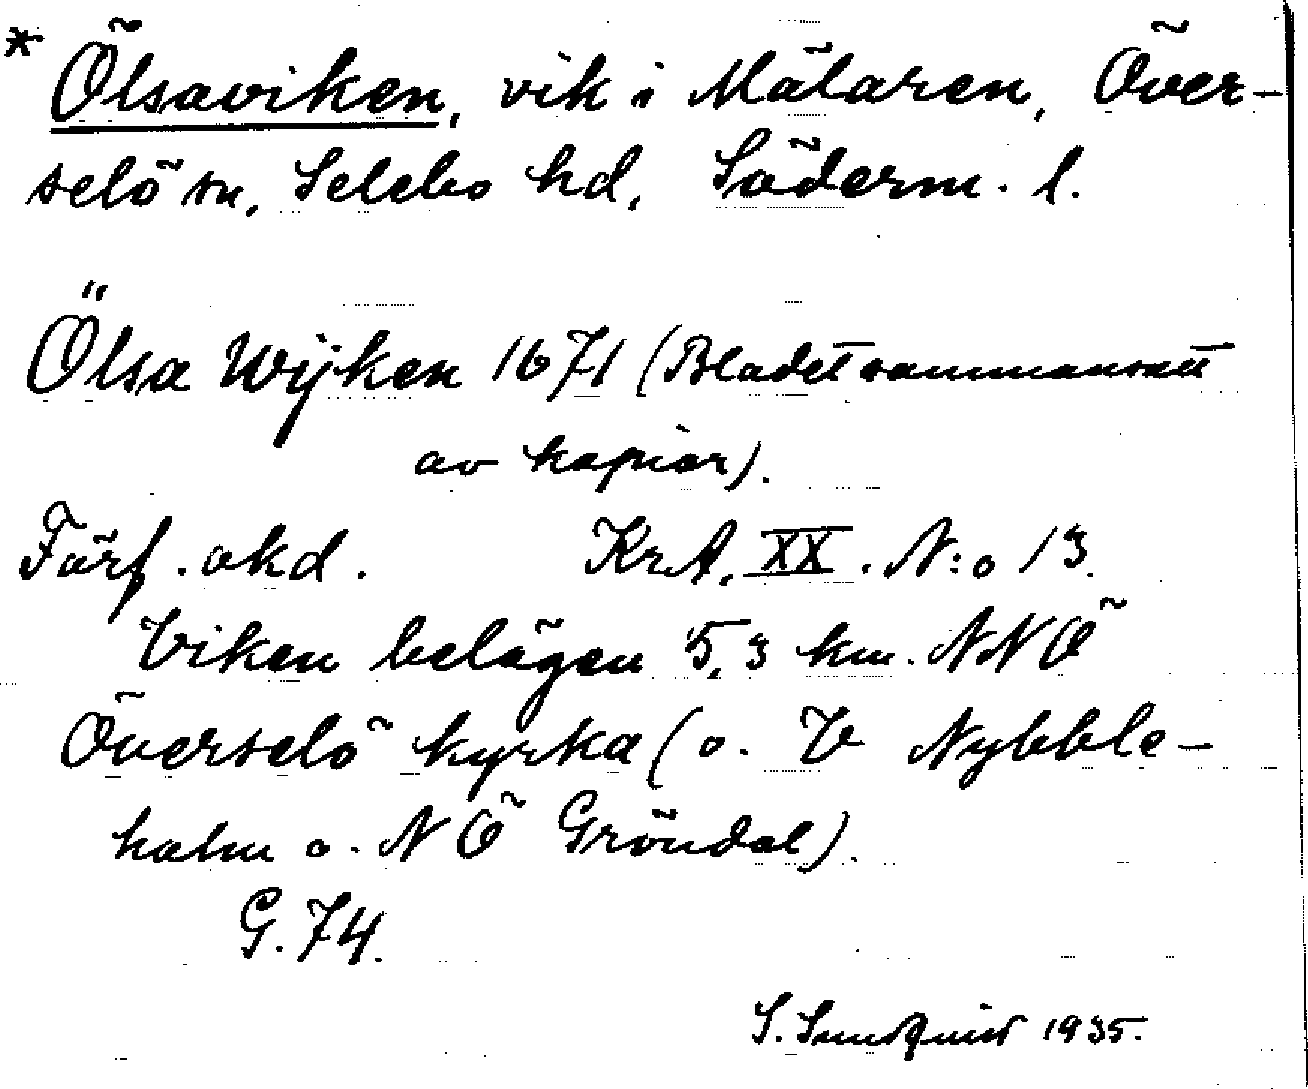 * Ölsaviken, vik i Mälaren, Över-
selö sn, Selebo hd, Söderm. l.
Ölsa Wijken 1671 (Bladet sammansatt
av kopior).
Förf. okd. Kr.A. XX. N:o 13.
Viken belägen 5,3 km. NNÖ
Överselö kyrka (o. V Nybble-
holm o. NÖ Gröndal).
G. 74.
S. Sundquist 1935.